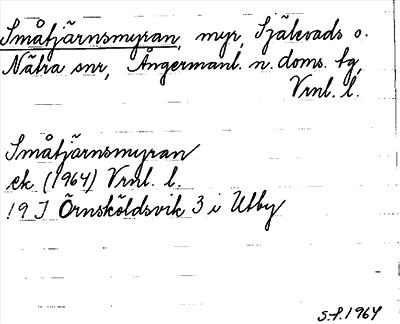 Småtjärnsmyran, myr, Själevads o.
Nätra snr, Ångermanl. n. doms. tg,
Vrnl. l.
Småtjärnsmyran
ek. (1964) Vrnl. l.
19 J Örnsköldsvik 3 i Utby
S.F. 1964